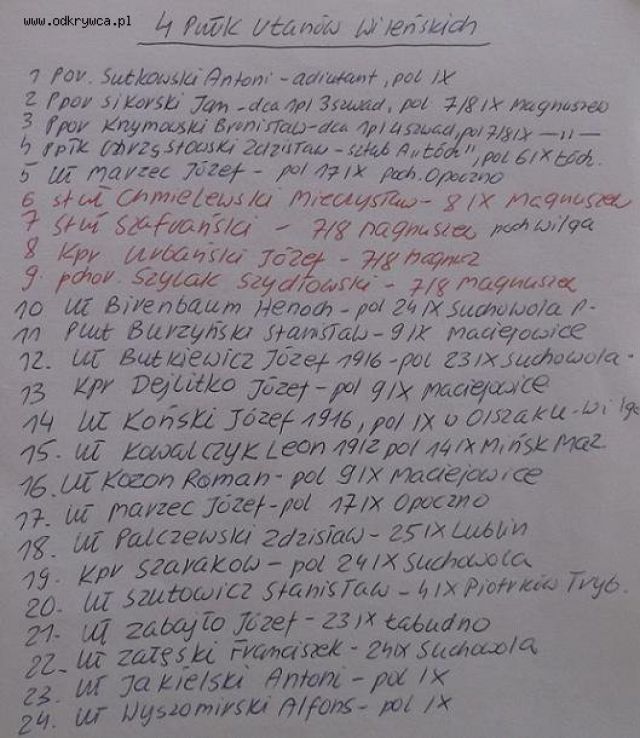 www.odkrywca.pl
4 Pułk Ułanów Wileńskich
1 Por. Sutkowski Antoni - adiutant, pol IX
2 Ppor Sikorski Jan - dca 1pl 3szwad, pol 7/8 IX Magnuszew
3 Ppor Krymowski Bronisław - dca 1pl 4szwad, pol 7/8 IX —||—
4 Ppłk Zdzisław - sztab A „Łódź", pol 6 IX Łódź.
5 Uł Marzec Józef - pol 17 IX poch. Opoczno
6 St uł Chmielewski Mieczysław - 8 IX Magnuszew
7 St uł Szafrański - 7/8 Magnuszew poch Wilga
8 Kpr Urbański Józef - 7/8 Magnusz
9. pchor. Szylak Szydłowski - 7/8 Magnuszew
10 Uł Birenbaum Henoch - pol 24 IX Suchowola P-
11 Plut Burzyński Stanisław - 9 IX Maciejowice
12. Uł Butkiewicz Józef 1916 - pol 23 IX Suchowola -
13 Kpr Dejlitko Józef - pol 9 IX Maciejowice
14 Uł Koński Józef 1916, pol IX w Olszaku - Wilga
15. Uł Kowalczyk Leon 1912 pol 14 IX Mińsk Maz
16. Uł Kozon Roman - pol 9 IX Maciejowice
17. Uł Marzec Józef - pol 17 IX Opoczno
18. Uł Palczewski Zdzisław - 25 IX Lublin
19. Kpr Szaraków - pol 24 IX Suchowola
20. Uł Szutowicz Stanisław - 4 IX Piotrków Tryb.
21. Uł Zabajło Józef - 23 IX Łabudno
22. Uł Załęski Franciszek - 24 IX Suchowola
23. Uł Jakielski Antoni - pol IX
24. Uł Wyszomirski Alfons - pol IX